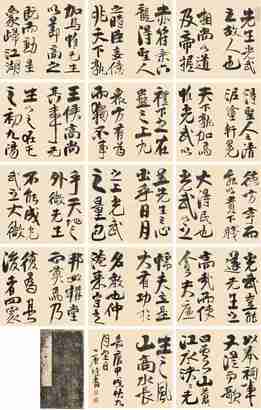 先生光武
之故人也
相尚以道
及帝握
赤符乘六
龍得聖人
之時臣妾億
兆天下孰
加焉惟先生
以節高之
既而動星
象歸江湖
得聖人之清
泥塗軒冕
天下孰加焉
惟光武以
禮下之在
蠱之上九
衆方有為
而獨不事
王侯高尚
其事先
生以之在屯
之初九陽
德方亨而
能以貴下賤
大得民也
光武以之
蓋先生之心
出乎日月
之上光武
之量包
乎天地之
外微先生
不能成光
武之大微
光武豈能
遂先生之
高哉而使
貪夫廉
懦夫立是
大有功於
名教也仲
淹來守是
邦始構堂
而奠焉乃
復為其
後者四家
以奉祠事
又從而歌
曰雲山蒼蒼
江水泱泱
先生之風
山高水長